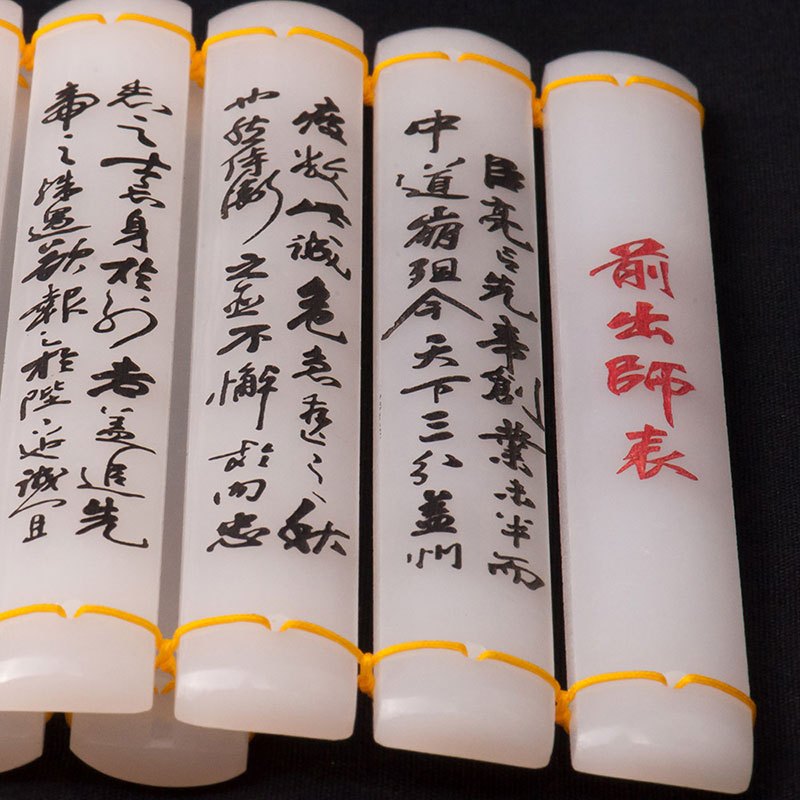 前出師表
臣亮言先帝創業未半而
中道崩殂今天下三分益州
疲敝此誠危急存亡之秋
也然侍衛之臣不懈於内忠
志之士忘身於外者蓋追先
帝之殊遇欲報之於陛下也誠宜